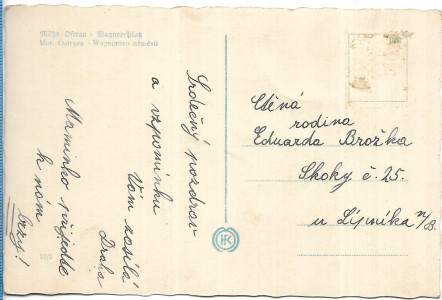 Mähr. Ostrau - Wagnerplatz
Mor. Ostrava - Wagnerovo náměstí
Srdečný pozdrav
a vzpomínku
Vám zasílá
Draha
Maminko přijedte
k nám
brzy!
Ctěná
rodina
Eduarda Brožka
Skoky č. 25.
u Lipníka n/B.